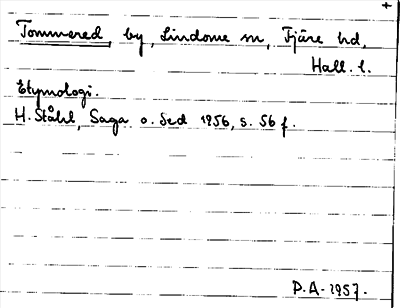 +
Tommered by, Lindome sn, Fjäre hd,
Hall. l.
Etymologi.
H. Ståhl, Saga o. Sed 1956, s. 56 f.
P.A. 1957.